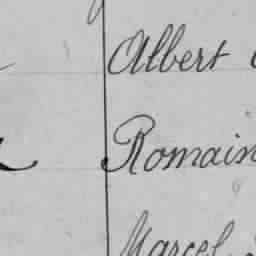 Albert
Romain
Marcel